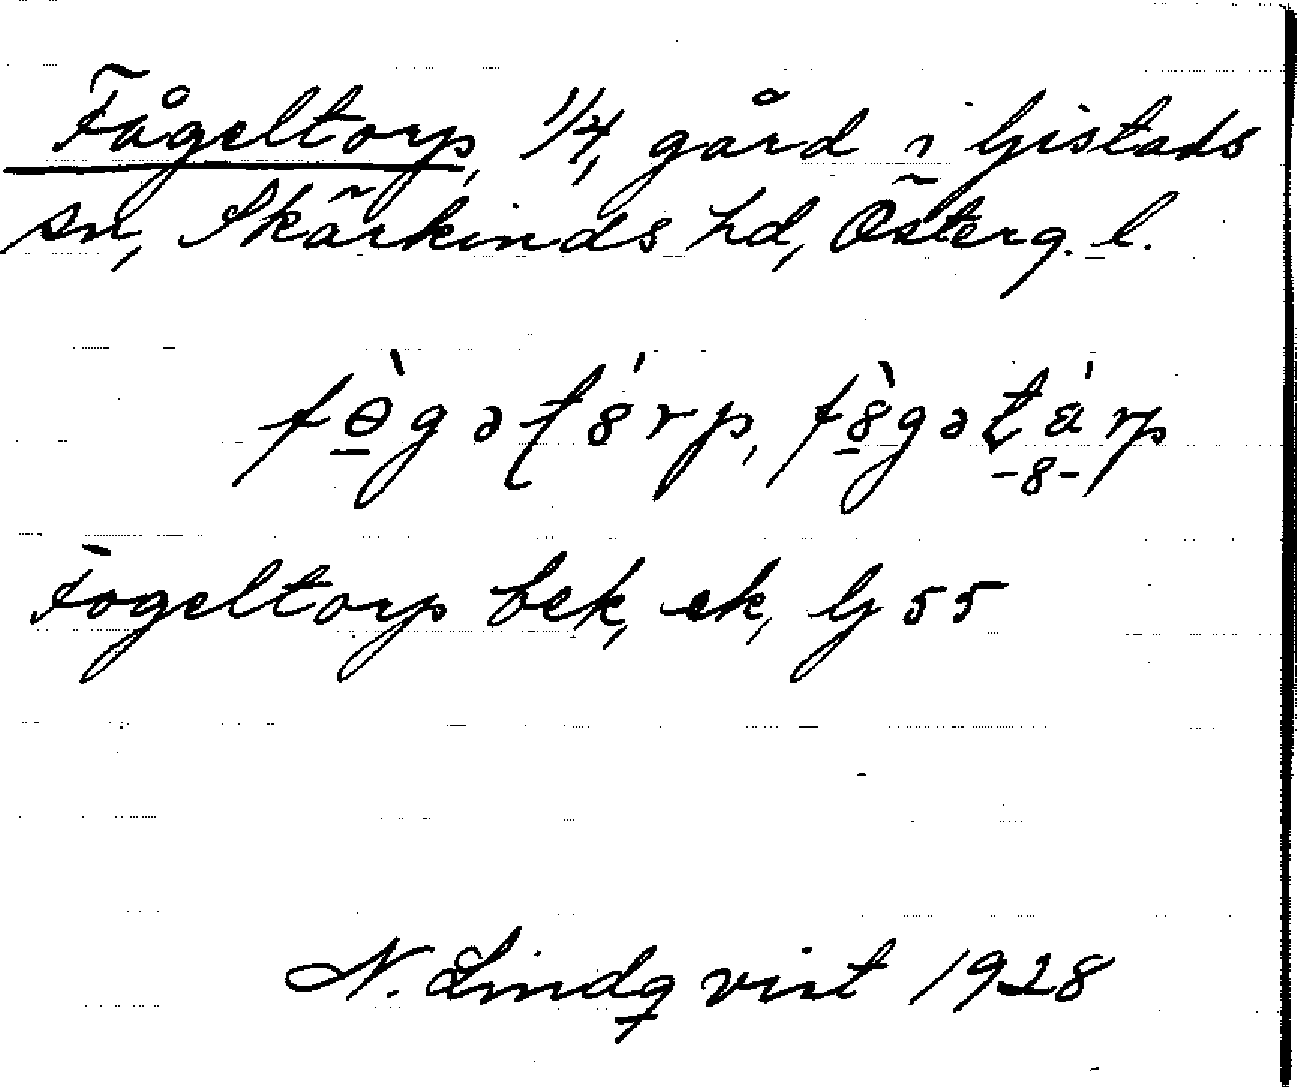 Fågeltorp, 1/4, gård i Gistads
sn, Skärkinds hd, Österg. l.
fɵ̀gətȣ́rp, fȣ̀gətárp
-ȣ-
Fogeltorp bek, ek, G 55
N. Lindqvist 1928